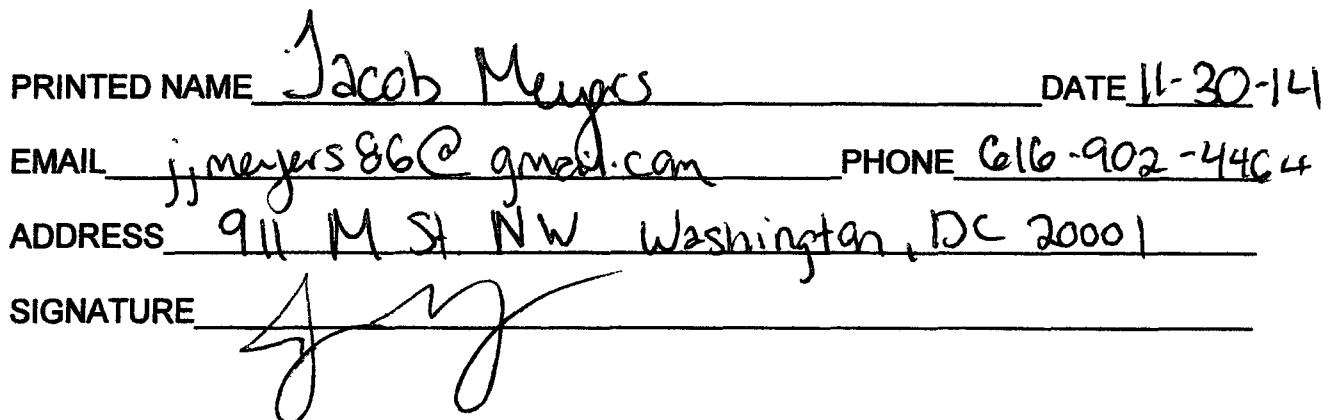 PRINTED NAME Jacob Meyers DATE 11-30-14
EMAIL jjmeyers86@gmail.com PHONE 616-902-4464
ADDRESS 911 M St NW Washington, DC 20001
SIGNATURE